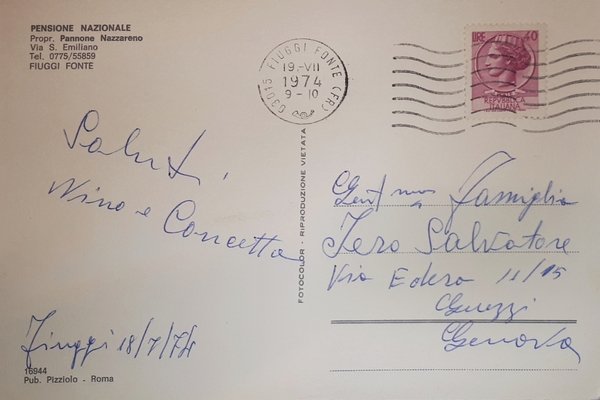 PENSIONE NAZIONALE
Propr. Pannone Nazzareno
Via S. Emiliano
Tel. 0775/55859
FIUGGI FONTE
03015 FIUGGI FONTE (FR)
19.-VII
1974
9-10
LIRE 40
REPUBBLICA
ITALIANA
Saluti
Nino e Concetta
Fiuggi 18/7/74
16944
Pub. Pizziolo - Roma
FOTOCOLOR - RIPRODUZIONE VIETATA
Gent/ma Famiglia
Salvatore
Via Edera 11/15
Genova